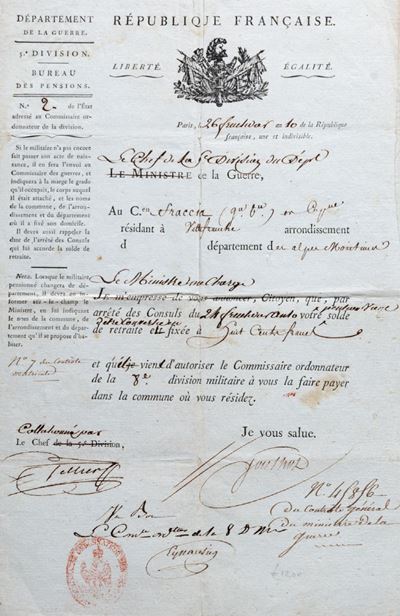 DÉPARTEMENT
DE LA GUERRE.
5.e DIVISION.
BUREAU
DES PENSIONS.
N.o 2 de l'État
adressé au Commissaire or-
donnateur de la division.
Si le militaire n'a pas encore
fait passer son acte de nais-
sance, il en fera l'envoi au
Commissaire des guerres, et
indiquera à la marge le grade
qu'il occupait, le corps auquel
il était attaché, et les noms
de la commune, de l'arron-
dissement et du département
où il a fixé son domicile.
Il devra aussi rappeler la
date de l'arrêté des Consuls
qui lui accorde la solde de
retraite.
Nota. Lorsque le militaire
pensionné changera de dépar-
tement, il devra en in-
former sur-le-champ le
Ministre, en lui indiquant
le nom de la commune, de
l'arrondissement et du dépar-
tement qu'il se propose d'ha-
biter.
N.o 7 du Contrôle
RÉPUBLIQUE FRANÇAISE.
LIBERTÉ. ÉGALITÉ.
Paris, le 26 fructidor an 10 de la République
française, une et indivisible.
Le Chef de la 5e Division du Dépt
LE MINISTRE de la Guerre,
Au C.en
résidant à Villefranche arrondissement
d département des alpes Maritimes
Le Ministre me Charge
de vous annoncer, Citoyen, que, par
arrêté des Consuls du 24 fructidor votre solde
de retraite est fixée à huit Cents francs
et qu'il vient d'autoriser le Commissaire ordonnateur
de la 8e division militaire à vous la faire payer
dans la commune où vous résidez.
Je vous salue.
Collationné par
Le Chef de la 5.e Division,
Tellier
N.o 45856
du Contrôle Général
du ministre de la
guerre
Vu Bon
de la 8 Don
£120